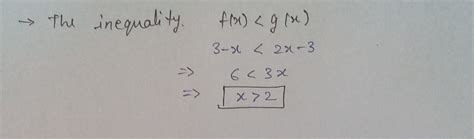 → The inequality. f(x) < g(x)
3-x < 2x-3
=> 6 < 3x
=> x > 2